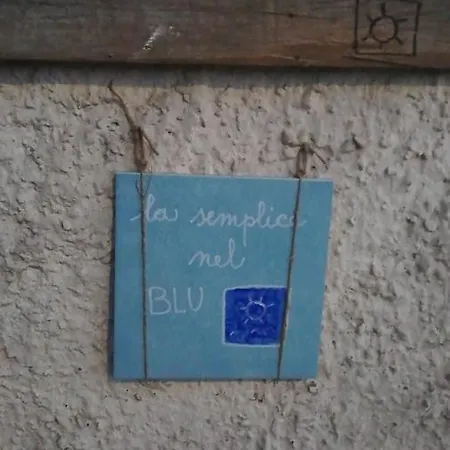 la semplice
nel
BLU